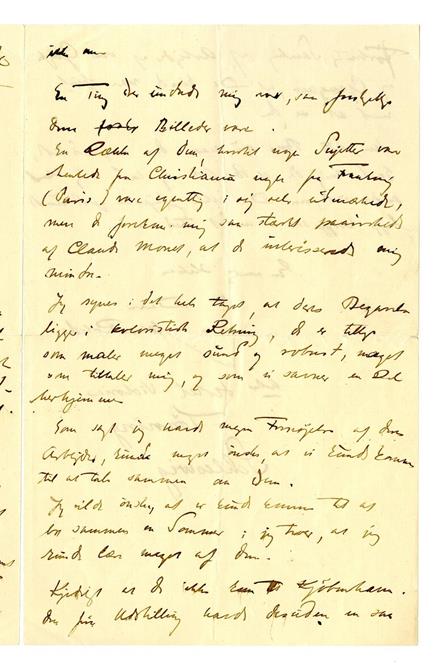 ikke
En Ting der undrede mig var, saa forskjellige
Deres Billeder vare.
En Række af Dem, hvortil nogle Sujetter var
hentede fra Christiania nogle fra
(Paris) vare egentlig i sig selv udmærkede,
men de forekom mig saa stærkt paavirkede
af Claude Monet, at de interesserede mig
mindre.
Jeg synes i det hele taget, at deres Begavelse
ligger i koloristisk Retning, De er tillige
som maler meget sund og robust, noget
som tiltaler mig, og som vi savner en Del
herhjemme
Som sagt jeg havde megen Fornøjelse af deres
Arbejder, kunde meget ønske, at vi kunde komme
til at tale sammen om Dem.
Jeg vilde ønske, at vi kunde komme til at
bo sammen en Sommer, jeg troer, at jeg
kunde lære meget af dem.
Kjedeligt at De ikke kom til Kjøbenhavn.
Den fri Udstilling havde desuden en saa